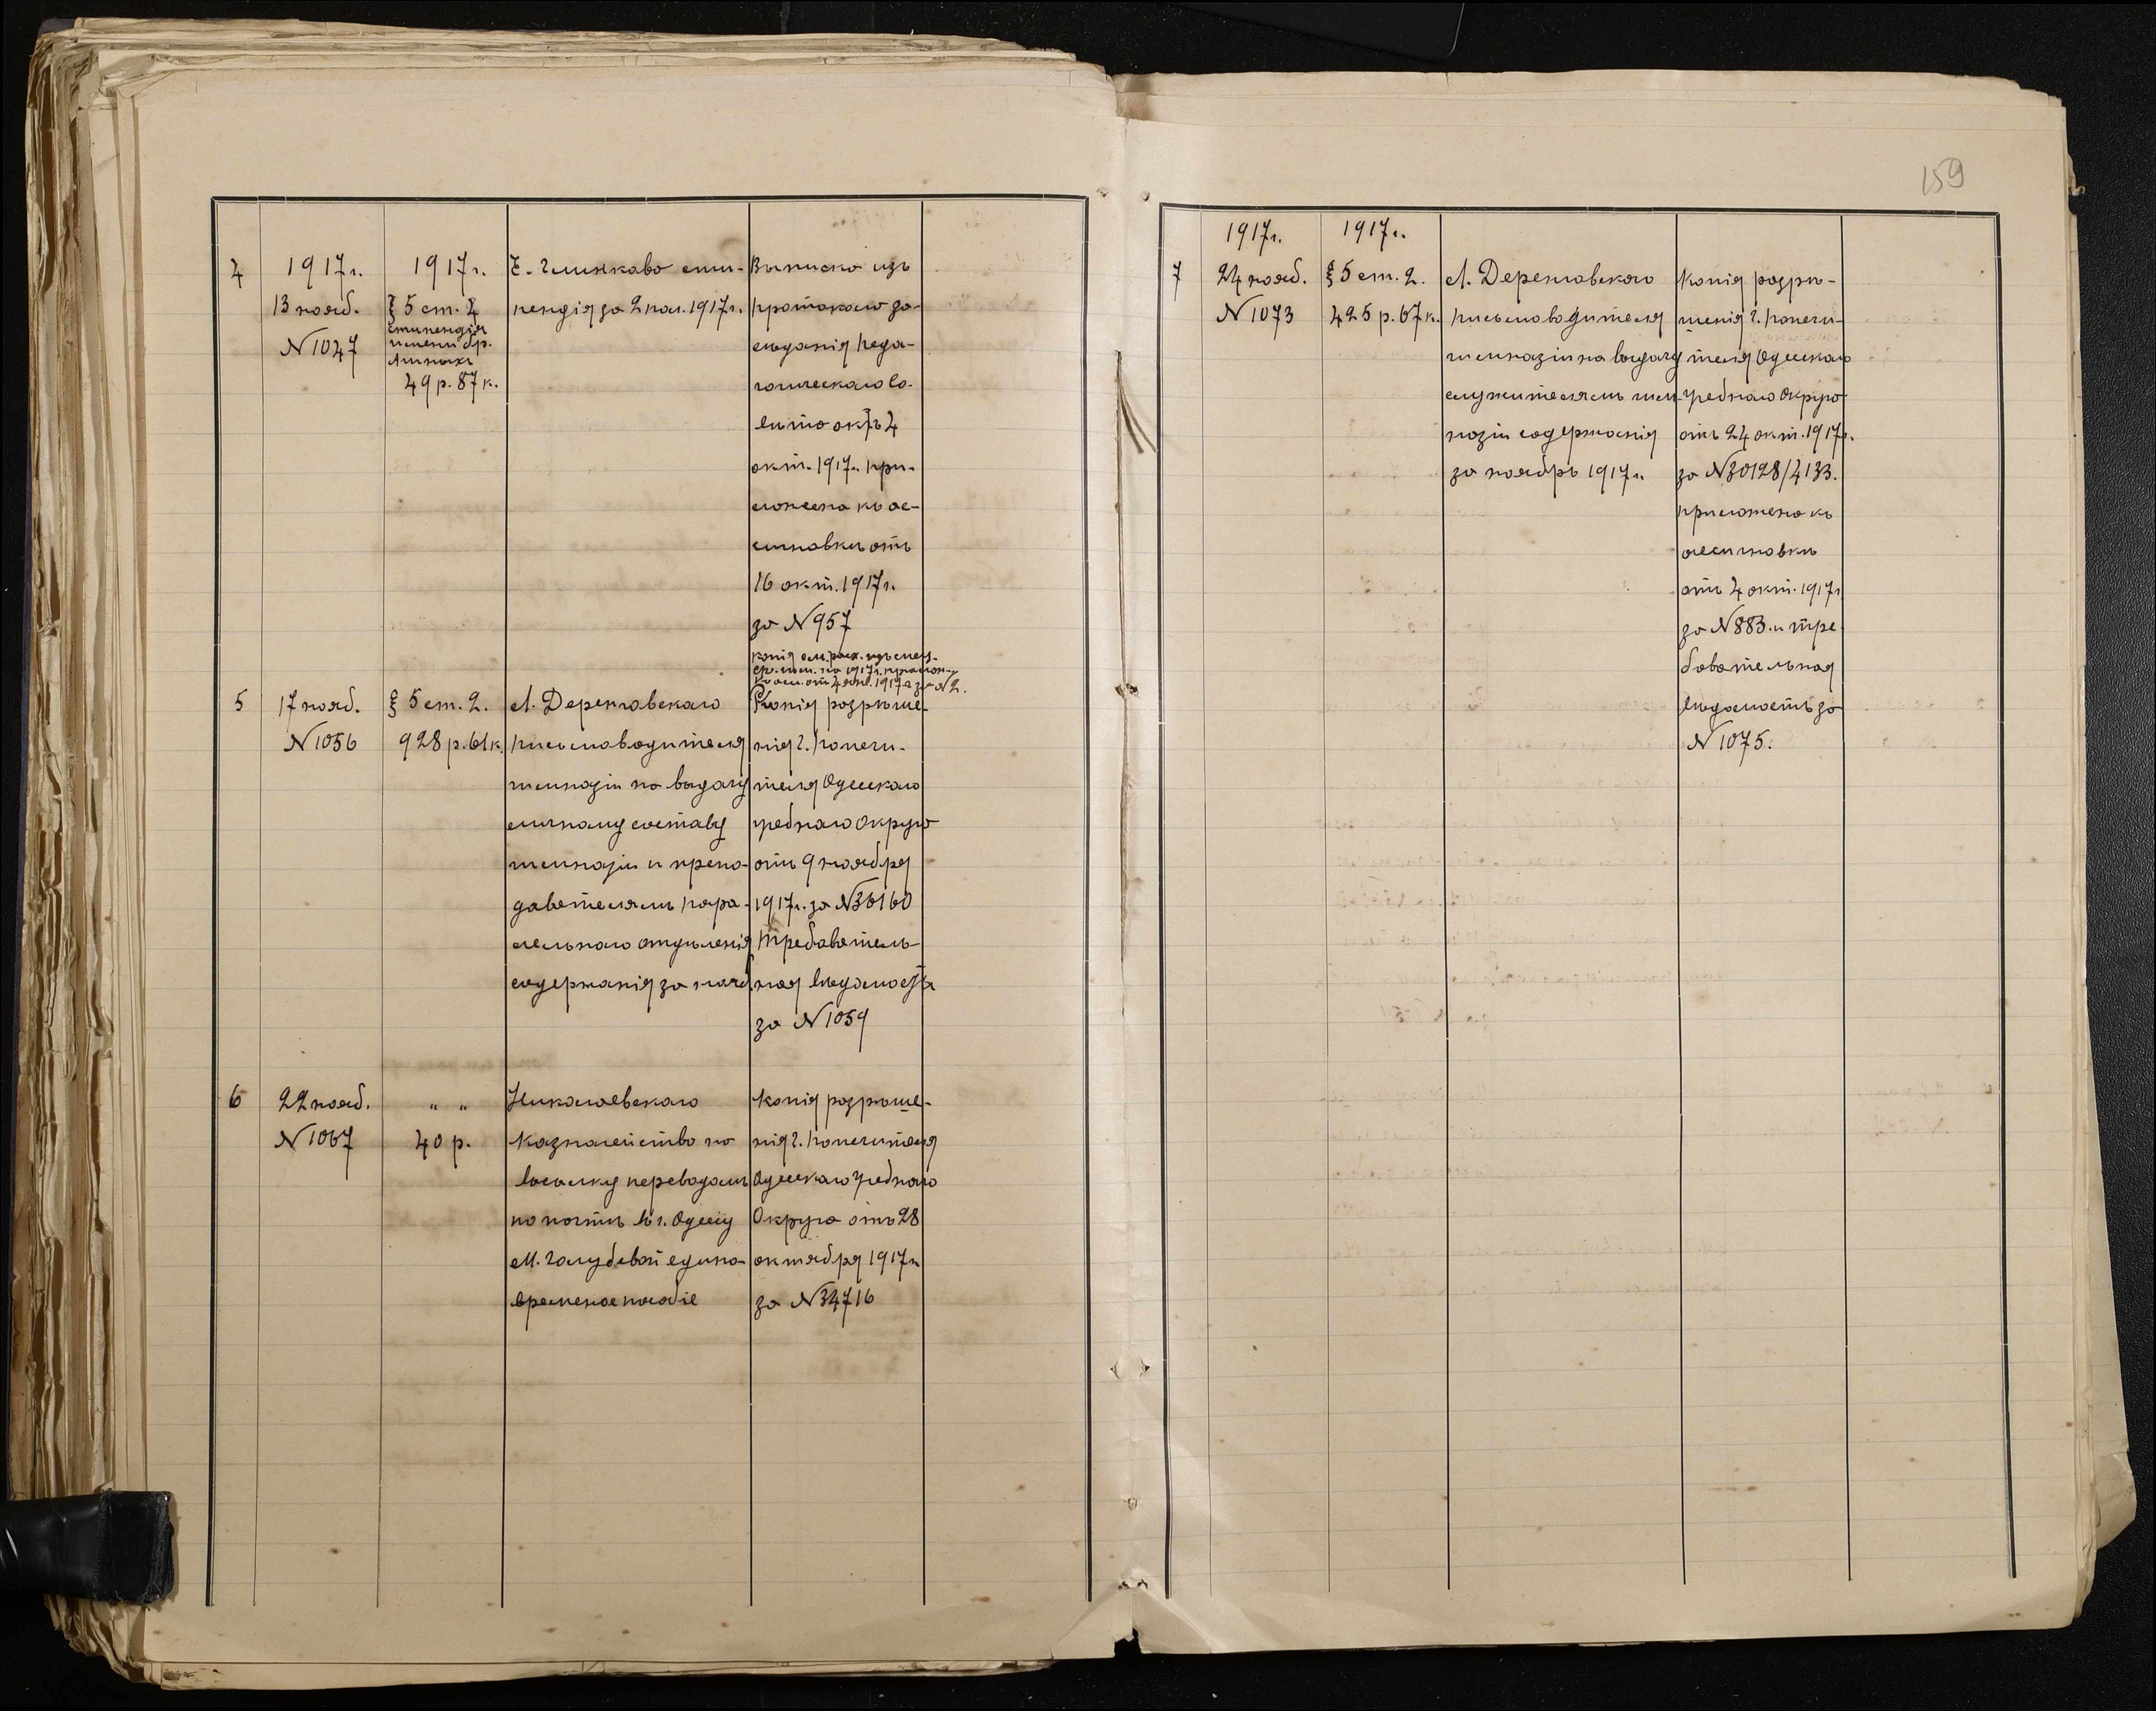 4
1917г.
13 нояб.
N 1047
1917г.
§ 5 ст. 2
стипендія
имени бр.
49 р. 87 к.
Е. Глинкова сти-
пендія за 2 пол. 1917г.
Выписка изъ
протокола за-
сѣданія педа-
гогическаго со-
вѣта 4
окт. 1917г. при-
ложена къ ас-
сигновкѣ отъ
16 окт. 1917г.
за N 957
5
17 нояб.
N 1056
§ 5 ст. 2.
928 р. 61 к.
Л. Деренговскаго
письмоводителя
гимназіи на выдачу
личному составу
гимназіи и препо-
давателямъ пара-
лельнаго отдѣленія
содержанія за нояб.
копія см. расх. изъ спец.
ср. гим. на 1917г. прилож.
N 2.
Копія разрѣше-
нія г. Попечи-
теля Одесскаго
Учебнаго Округа
отъ 9 ноября
1917г. за N 36160
Требователь-
ная вѣдомость
за N 1059
6
22 нояб.
N 1067
" "
40 р.
Николаевскаго
Казначейство на
высылку переводомъ
по почтѣ въ г. Одессу
М. Голубевой едино-
временое пособіе
Копія разрѣше-
нія г. Попечителя
Одесскаго Учебнаго
Округа отъ 28
октября 1917г.
за N 34716
159
7
1917г.
24 нояб.
N 1073
1917г.
§ 5 ст. 2.
425 р. 67 к.
Л. Деренговскаго
письмоводителя
гимназіи на выдачу
служителямъ гим-
назіи содержанія
за ноябрь 1917г.
Копія разрѣ-
шенія г. Попечи-
теля Одесскаго
Учебнаго Округа
отъ 24 окт. 1917г.
за N 30128/4133.
приложена къ
ассигновкѣ
отъ 4 окт. 1917г
за N 883. и тре-
бовательная
вѣдомость за
N 1075.